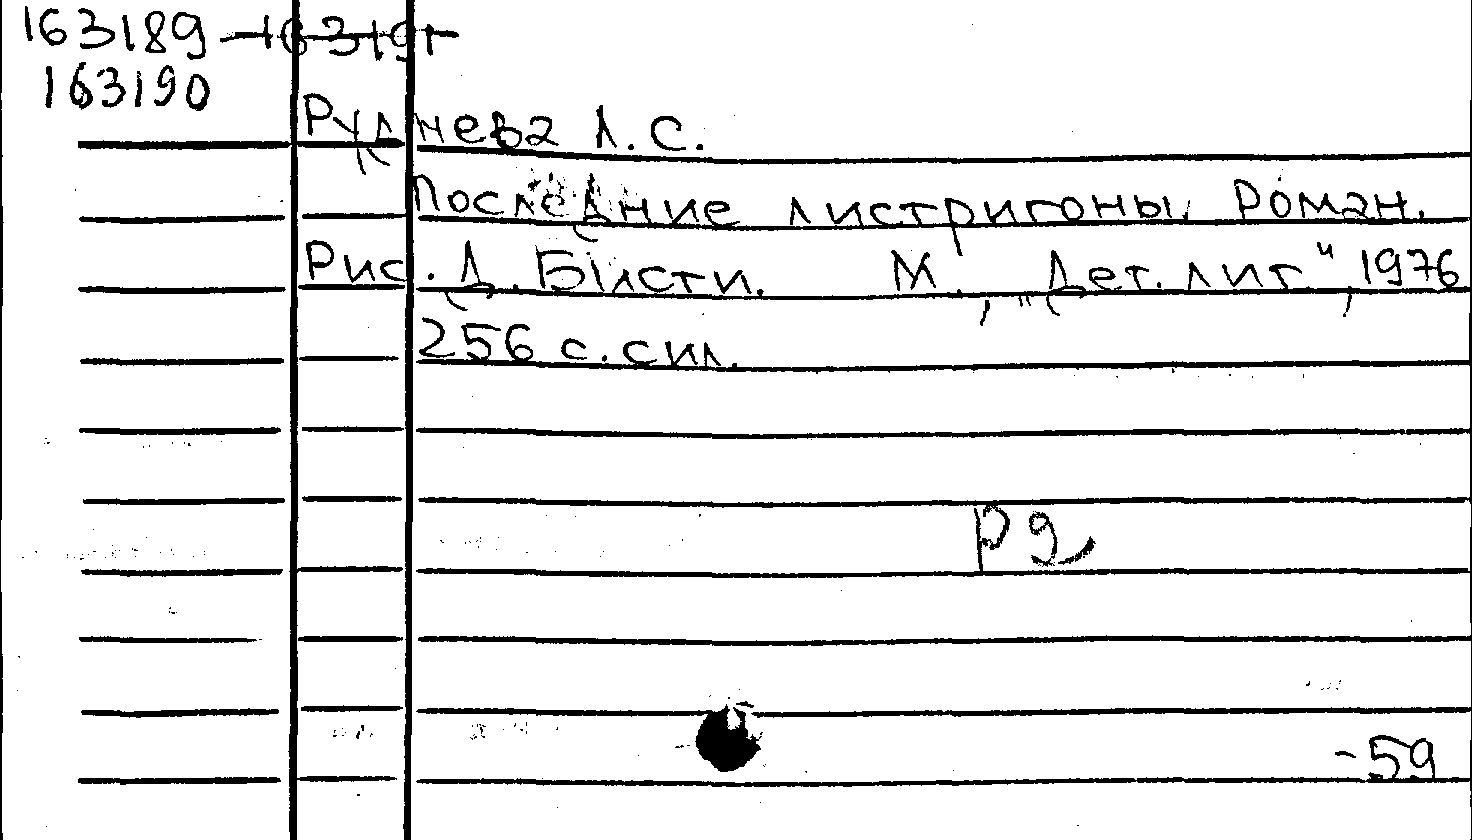 163189 163191
163190
Руднева Л.С.
Последние листригоны. Роман.
Рис. Д. Бисти. М., „Дет. лит“, 1976
256 с. с ил.
Р2
-59